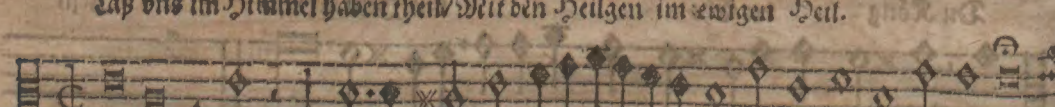 Laß vns im Himmel haben theil/ Mit den Heilgen im ewigen Heil.